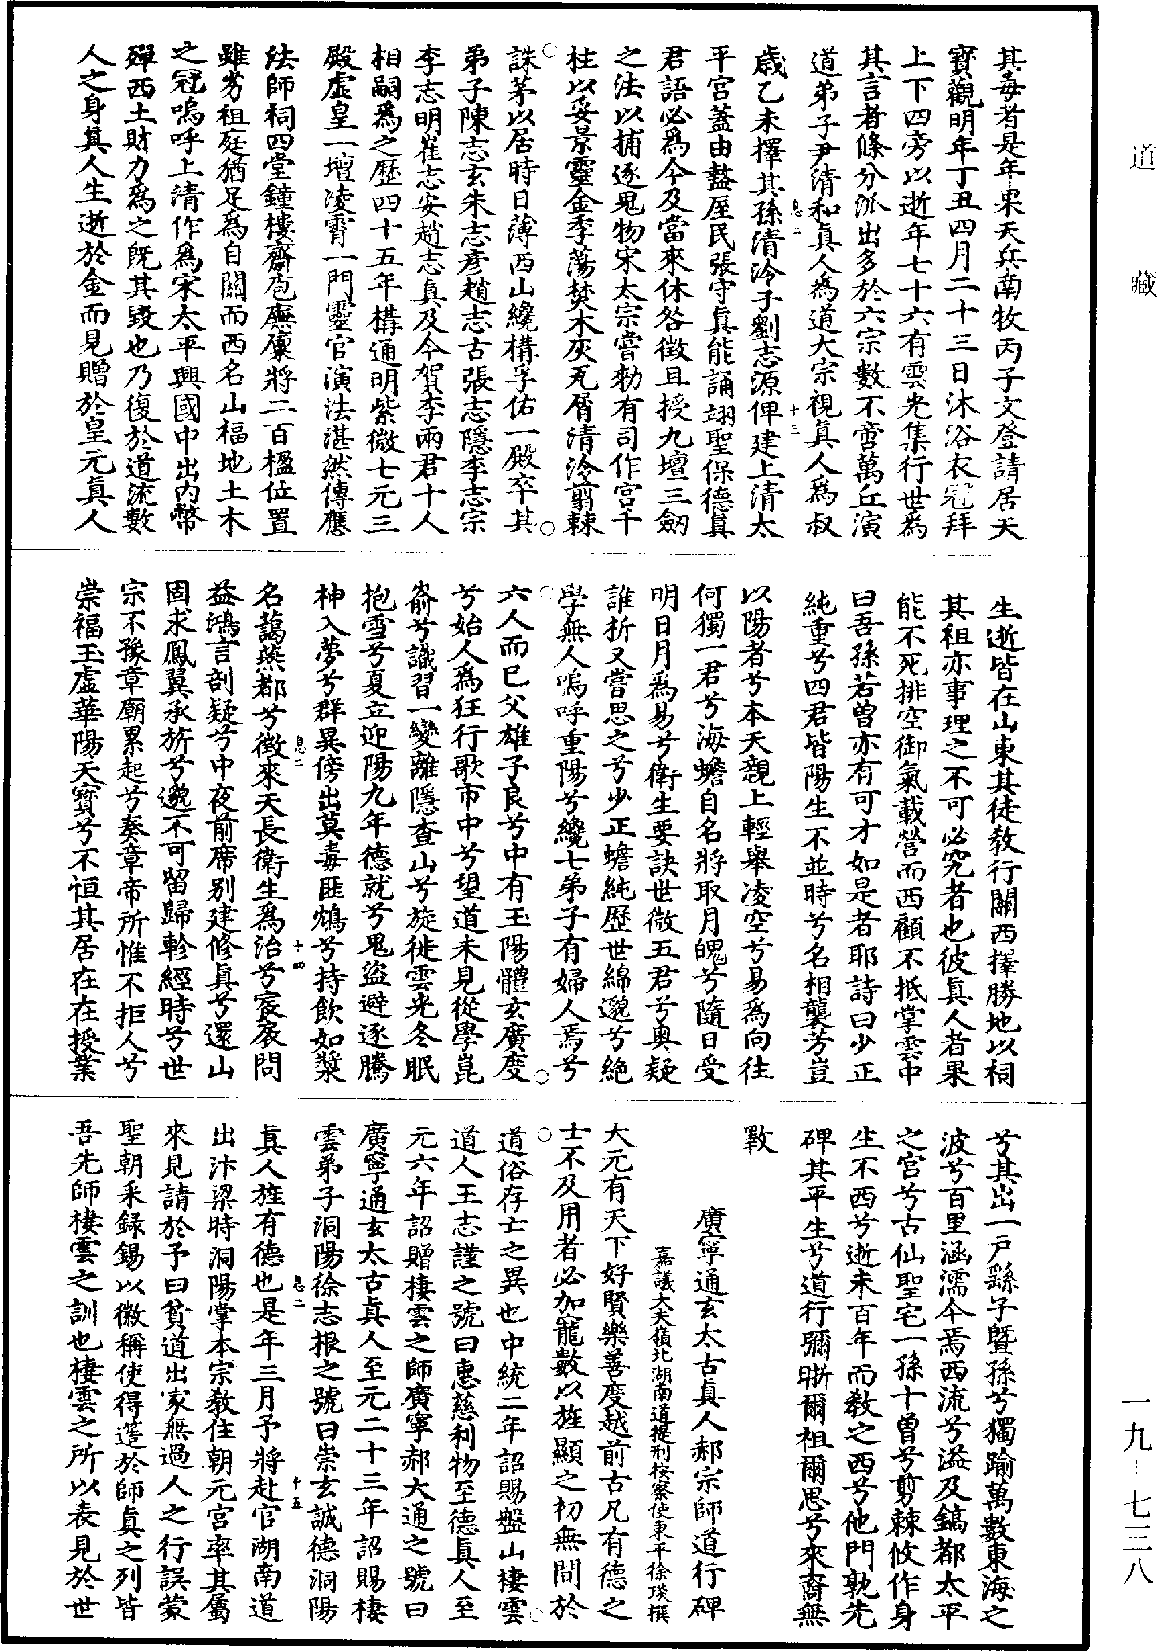 道藏
其毒者是年果天兵南牧丙子文登請居天
寶觀明年丁丑四月二十三日沐浴衣冠拜
上下四旁以逝年七十六有雲光集行世為
其言者條分派出多於六宗數不啻萬丘演
道弟子尹清和真人為道大宗視真人為叔
歲乙未擇其孫清泠子劉志源俾建上清太
平宮蓋由盩厔民張守真能誦翊聖保德真
君語必為今及當來休咎徵且授九壇三劒
之法以捕逐鬼物宋太宗嘗勑有司作宮千
柱以妥景靈金季蕩焚木灰瓦屑清泠翦棘
誅茅以居時日薄西山纔構孚佑一殿卒其
弟子陳志玄朱志彥趙志古張志隱李志宗
李志明崔志安趙志真及今賀李兩君十人
相嗣為之歷四十五年構通明紫微七元三
殿虛皇一壇凌霄一門靈官演法湛然傳應
法師祠四堂鐘樓齋庖廡廩將二百楹位置
雖劣祖庭猶足為自關而西名山福地土木
之冠嗚呼上清作為宋太平興國中出內幣
殫西土財力為之既其毀也乃復於道流數
人之身其人生逝於金而見贈於皇元真人
生逝皆在山東其徒教行關西擇勝地以祠
其祖亦事理之不可必究者也彼真人者果
能不死排空御氣載營而西顧不抵掌雲中
曰吾孫若曾亦有可才如是者耶詩曰少正
純重兮四君皆陽生不並時兮名相襲芳豈
以陽者兮本天親上輕舉凌空兮易為向往
何獨一君兮海蟾自名將取月魄兮隨日受
明日月為易兮衛生要訣世微五君兮奧疑
誰折又嘗思之兮少正蟾純歷世綿邈兮絕
學無人嗚呼重陽兮纔七弟子有婦人焉兮
六人而已父雄子良兮中有玉陽體玄廣度
兮始人為狂行歌市中兮望道未見從學崑
嵛兮識習一變離隱查山兮旋徙雲光冬眠
抱雪兮夏立迎陽九年德就兮鬼盜避逐騰
神入夢兮群異傍出莫毒匪鴆兮持飲如漿
名藹燕都兮徵來天長衛生為治兮宸衮問
益鴻言剖疑兮中夜前席別建修真兮還山
固求鳳翼承旂兮邈不可留歸軫經時兮世
宗不豫章廟累起兮奏章帝所惟不拒人兮
崇福玉虛華陽天寶兮不恒其居在在授業
兮其出一戶繇子暨孫兮獨踰萬數東海之
波兮百里涵濡今焉西流兮溢及鎬都太平
之宮兮古仙聖宅一孫十曾兮剪棘攸作身
生不西兮逝未百年而教之西兮他門孰先
碑其平生兮道行彌晣爾祖爾思兮來裔無
斁
廣寧通玄太古真人郝宗師道行碑
嘉議大夫嶺北湖南道提刑按察使東平徐琰撰
大元有天下好賢樂善度越前古凡有德之
士不及用者必加寵數以旌顯之初無間於
道俗存亡之異也中統二年詔賜盤山棲雲
道人王志謹之號曰惠慈利物至德真人至
元六年詔贈棲雲之師廣寧郝大通之號曰
廣寧通玄太古真人至元二十三年詔賜棲
雲弟子洞陽徐志根之號曰崇玄誠德洞陽
真人旌有德也是年三月予將赴官湖南道
出汴梁時洞陽掌本宗教住朝元宮率其屬
來見請於予曰貧道出家無過人之行誤蒙
聖朝采錄錫以徽稱使得蓋於師真之列皆
吾先師棲雲之訓也棲雲之所以表見於世
一九—七三八